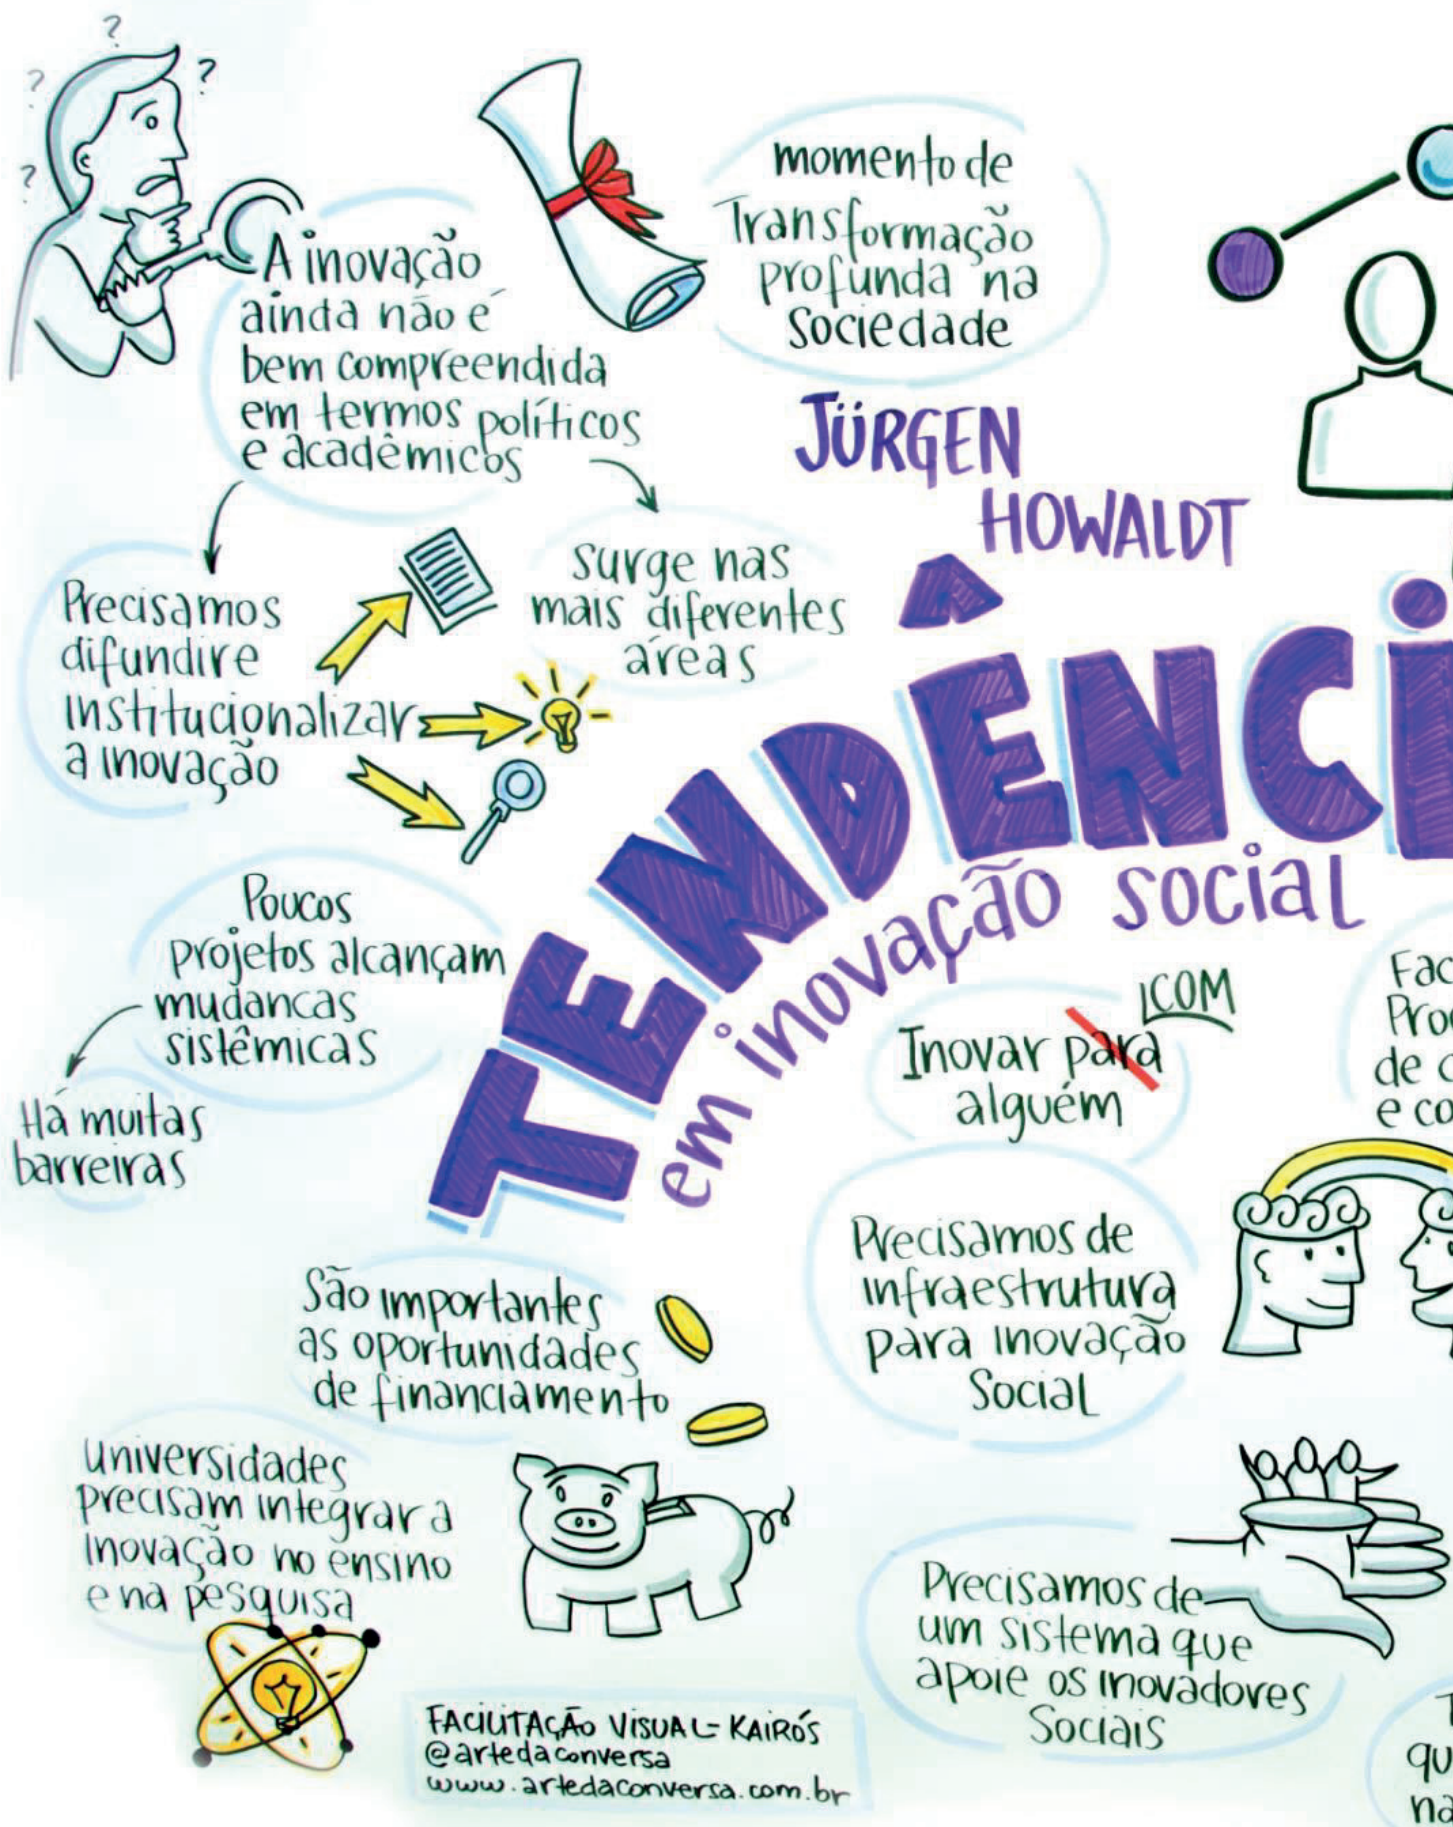 ?
?
?
?
A inovação
ainda não é
bem compreendida
em termos políticos
e acadêmicos
momento de
Transformação
profunda na
Sociedade
JÜRGEN
HOWALDT
Precisamos
difundir e
institucionalizar
a inovação
surge nas
mais diferentes
áreas
TENDÊNCI
em inovação social
Poucos
projetos alcançam
mudancas
sistêmicas
Há muitas
barreiras
COM
Inovar para
alguém
Fac
Pro
de c
e co
Precisamos de
infraestrutura
para inovação
Social
São importantes
as oportunidades
de financiamento
universidades
precisam integrar a
inovação no ensino
e na pesquisa
Precisamos de
um sistema que
apoie os inovadores
Sociais
FACILITAÇÃO VISUAL - KAIRÓS
@artedaconversa
www.artedaconversa.com.br
qu
na